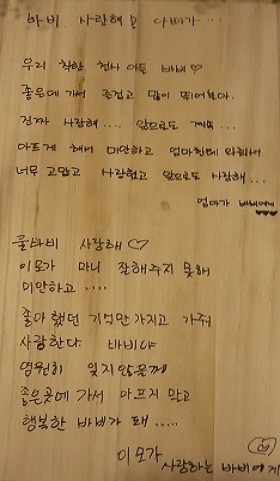 바비 사랑해요 아빠가...
우리 착한 천사 아들 바비♡
좋은데 가서 즐겁고 많이 뛰어놀아.
진짜 사랑해.... 앞으로도 계속...
아프게 해서 미안하고 엄마한테 와줘서
너무 고맙고 사랑했고 앞으로도 사랑해...
엄마가 바비에게
♥♥♥
꿀바비 사랑해♡
이모가 마니 잘해주지 못해
미안하고....
좋아했던 기억만 가지고 가줘
사랑한다 바비야
영원히 잊지않을께
좋은곳에 가서 아프지 말고
행복한 바비가 돼....
이모가 사랑하는 바비에게